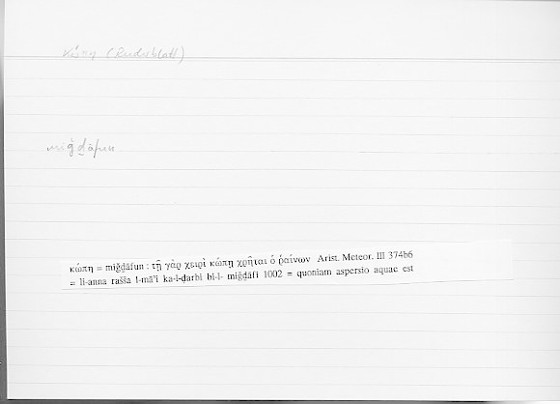 κώπη (Ruderblatt)
miǧḏāfun
κώπη = miǧḏāfun : τῇ γὰρ χειρὶ κώπῃ χρῆται ὁ ῥαίνων Arist. Meteor. III 374b6
= li-anna rašša l-mā'i ka-l-ḍarbi bi-l- miǧḏāfi 1002 = quoniam aspersio aquae est